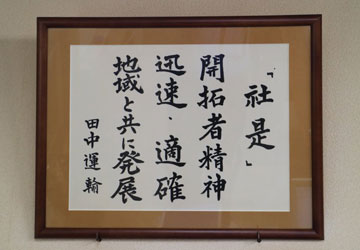 「社是」
開拓者精神
迅速、適確
地域と共に発展
田中運輸